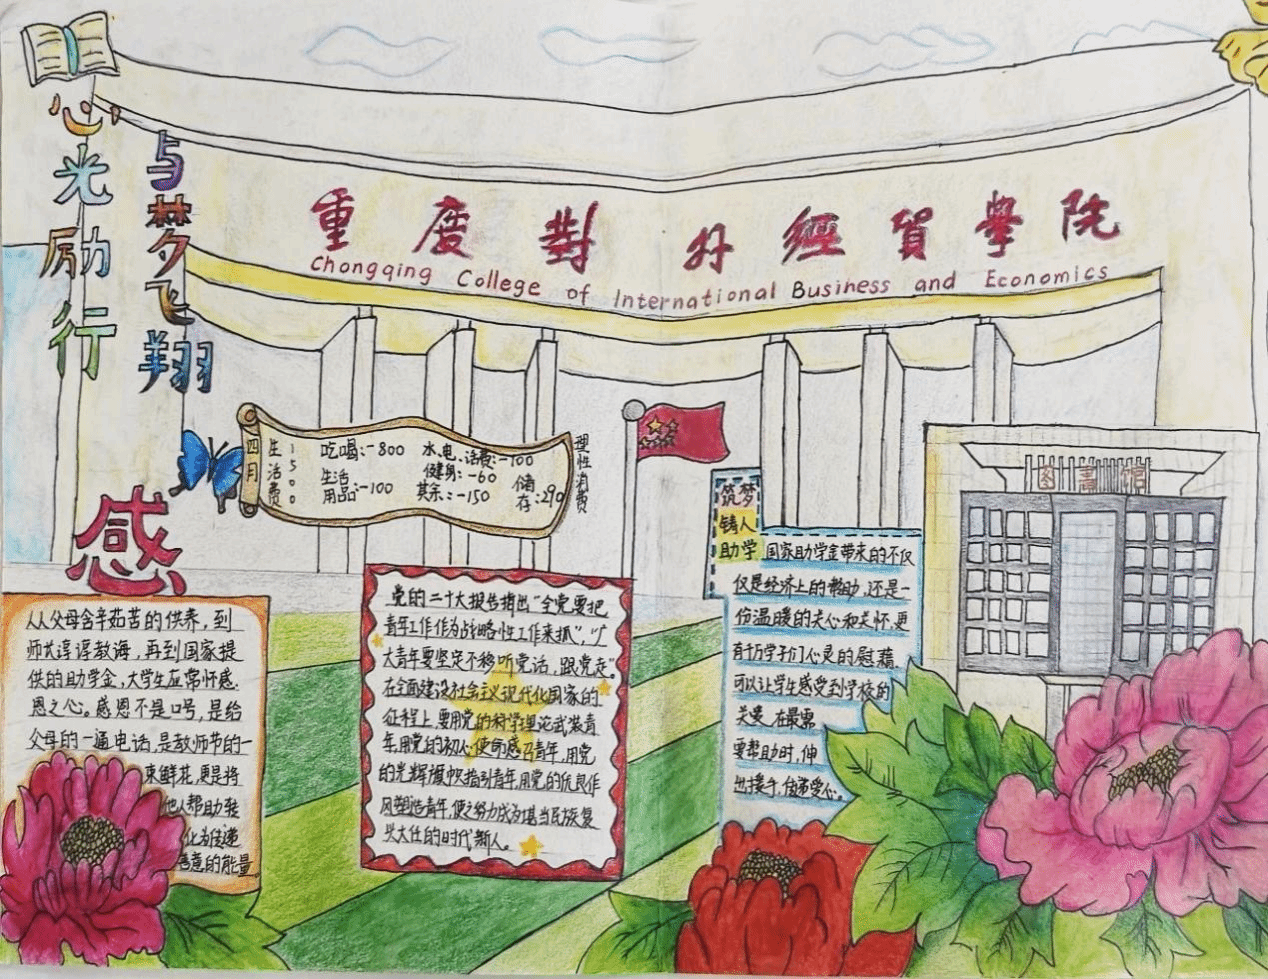 心光励行
与梦飞翔
重庆對外經貿學院
Chongqing College of International Business and Economics
四月
生活费
1500
吃喝:-800
水、电、话费:-100
生活
用品:-100
健身:-60
其余:-150
储
存:290
理性消费
图書馆
感
从父母含辛茹苦的供养,到
师长谆谆教诲,再到国家提
供的助学金,大学生应常怀感
恩之心。感恩不是口号,是给
父母的一通电话,是教师节的一
束鲜花,更是将
他人帮助转
化为传递
善意的能量
党的二十大报告指出“全党要把
青年工作作为战略性工作来抓”,“广
大青年要坚定不移听党话,跟党走”。
在全面建设社会主义现代化国家的
征程上,要用党的科学理论武装青
年,用党的初心使命感召青年,用党
的光辉旗帜指引青年,用党的优良作
风塑造青年,使之努力成为堪当民族复
兴大任的时代新人。
筑梦
铸人
助学
国家助学金带来的不仅
仅是经济上的帮助,还是一
份温暖的关心和关怀,更
有千万学子们心灵的慰藉,
可以让学生感受到学校的
关爱,在最需
要帮助时,伸
出援手,传递爱心。